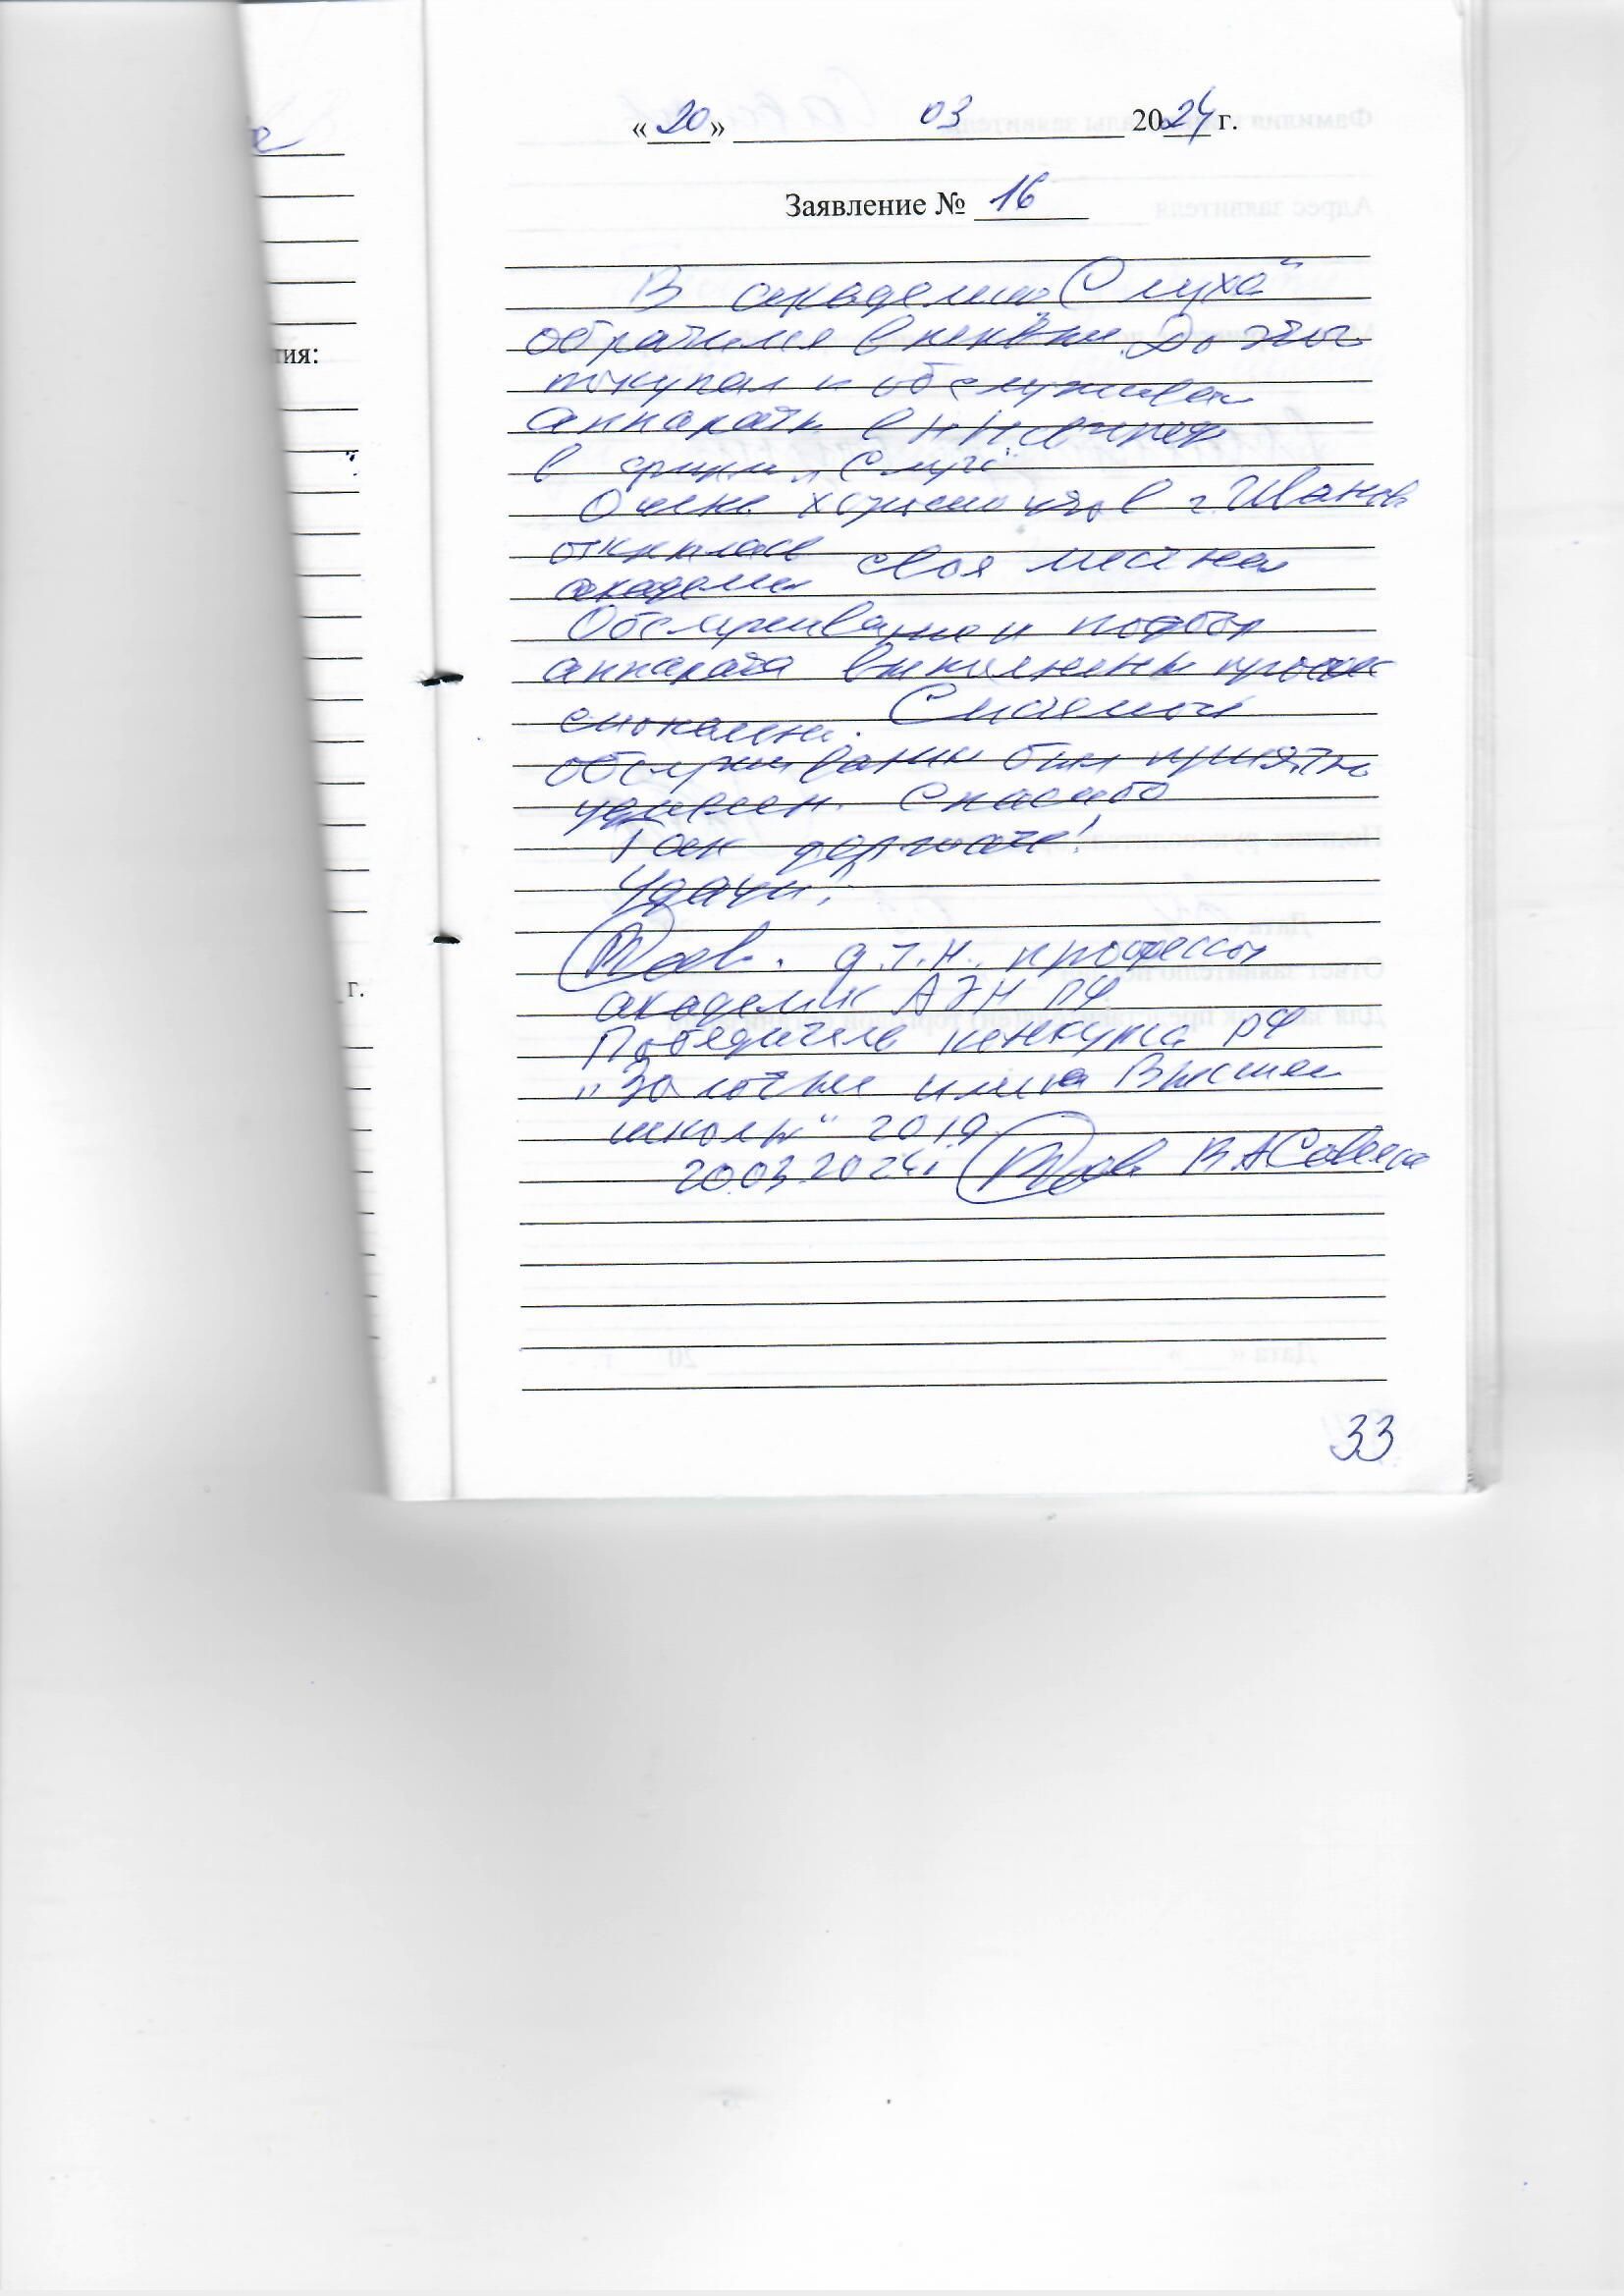 тия:
г.
« 20 » 03 2024 г.
Заявление № 16
В академию „Слуха“
обратился впервые. До этого
покупал и обслуживал
аппараты в Н Новгороде
в фирме „Слух“
Очень хорошо что в г. Иваново
открылась своя местная
академия
Обслуживание и подбор
аппарата выполнены
Системой
обслуживания был приятно
удивлен. Спасибо
Так держать!
Удачи!
д.т.н., профессор
академик АЭН РФ
Победитель конкурса РФ
„Золотые имена Высшей
школы“ 2019
20.03.2024г В А
33